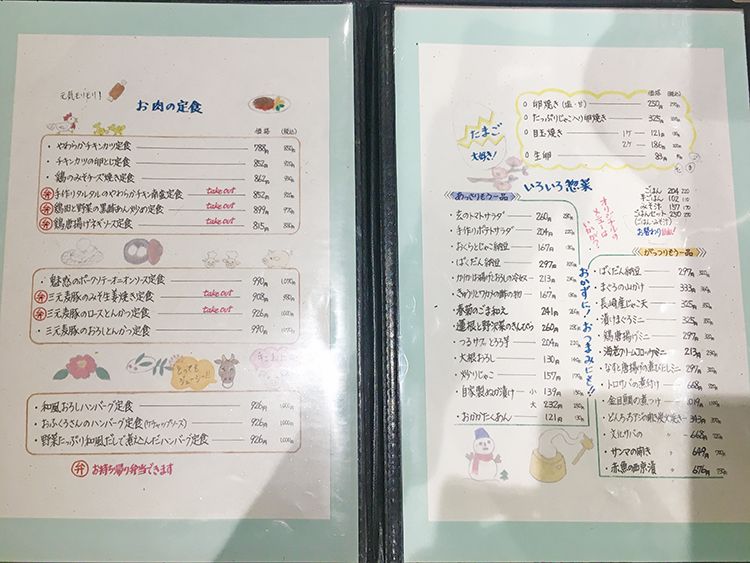 お肉の定食
価格 (税込)
・やわらかチキンカツ定食 788円
・チキンカツの卵とじ定食 852円
・鶏のみそチーズ焼き定食 862円
弁 手作りタルタルのやわらかチキン南蛮定食 take out 852円
弁 鶏肉と野菜の黒酢あん炒め定食 take out 899円
弁 鶏唐揚げネギソース定食 take out 815円
・魅惑のポークソテーオニオンソース定食 990円
弁 三元麦豚のみそ生姜焼き定食 take out 908円
弁 三元麦豚のロースとんかつ定食 take out 926円
・三元麦豚のおろしとんかつ定食 990円
とっても
ジューシー!!
・和風おろしハンバーグ定食 926円
・おふくろさんのハンバーグ定食(ケチャップソース) 926円
・野菜たっぷり和風だしで煮込んだハンバーグ定食 926円
弁 お持ち帰り弁当できます
たまご
大好き!
価格 (税込)
卵焼き (塩・甘) 250円
たっぷりじゃこ入り卵焼き 325円
目玉焼き 1ケ 121円
2ケ 186円
生卵 83円
いろいろ惣菜
ごはん 204 220
半ごはん 102 110
みそ汁 157 170
ごはんセット 230 250
(ごはん・みそ汁)
あっさりもう一品
・玄のトマトサラダ 260円
・手作りポテトサラダ 287円
・おくらとじゃこ納豆 167円
・ばくだん納豆 297円
・きゅうりとワカメの酢の物 167円
・春菊のごま和え 241円
・蓮根と野菜のきんぴら 260円
・つるサク とろろ芋 204円
・大根おろし 130円
・炒りりじゃこ 157円
・自家製ぬか漬け 小 139円
大 232円
・おかかたくあん 121円
おかずに!おつまみにも!!
がっつりもう一品
・ばくだん納豆 297円
・まぐろの山かけ 333円
・長崎産じゃこ天 325円
・漬けまぐろミニ 297円
・鶏唐揚げミニ 297円
・海老クリームコロッケミニ 213円
・なすと唐揚げの煮びたしミニ 297円
・トロサバの煮付け 668円
・金目鯛の煮つけ 1,019円
・文化サバの 〃 668円
・サンマの開き 〃 649円
・赤魚の西京漬 〃 676円